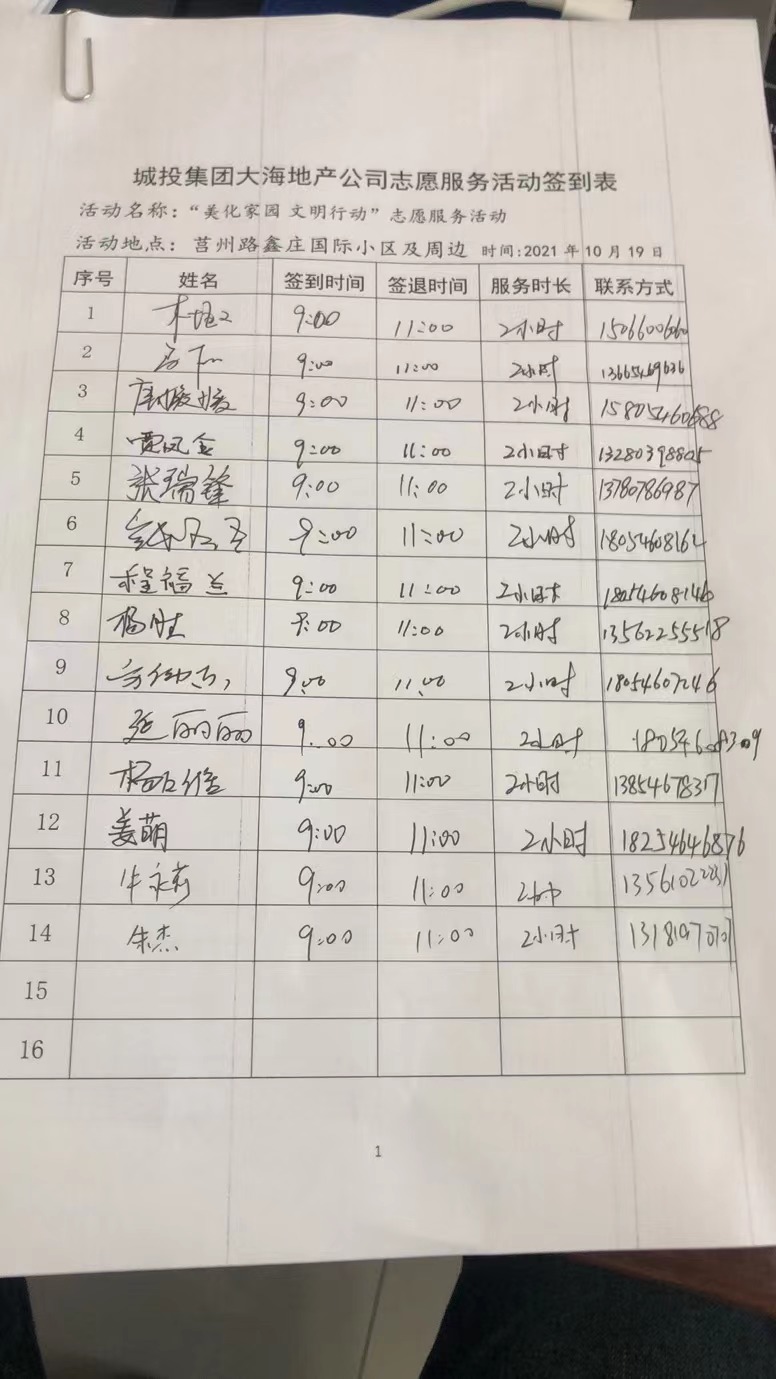 城投集团大海地产公司志愿服务活动签到表
活动名称：“美化家园 文明行动”志愿服务活动
活动地点：莒州路鑫庄国际小区及周边 时间:2021年10月19日
序号 姓名 签到时间 签退时间 服务时长 联系方式
1 9:00 11:00 2小时 15066006060
2 9:00 11:00 2小时 13665469636
3 唐媛媛 9:00 11:00 2小时 15805460688
4 贾风金 9:00 11:00 2小时 13280398805
5 张瑞锋 9:00 11:00 2小时 13780786987
6 9:00 11:00 2小时 18054608164
7 程福兰 9:00 11:00 2小时 18054608146
8 杨胜 9:00 11:00 2小时 13562255518
9 9:00 11:00 2小时 18054607246
10 张丽丽 9:00 11:00 2小时
11 9:00 11:00 2小时 13854678317
12 姜萌 9:00 11:00 2小时 18254646876
13 9:00 11:00
14 朱杰 9:00 11:00 2小时
15
16
1